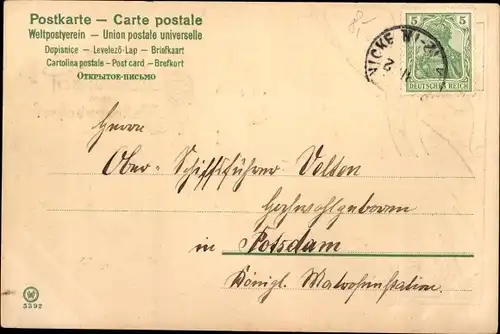 Postkarte – Carte postale
Weltpostverein – Union postale universelle
Dopisnice – Levelező-Lap – Briefkaart
Cartolina postale – Post card – Brefkort
Открытое-письмо
8,-
5 5
DEUTSCHES REICH
Herrn
Ober-Schiffsführer Velten
Hochwohlgeboren
in Potsdam
Königl. Matrosenstation.
5392